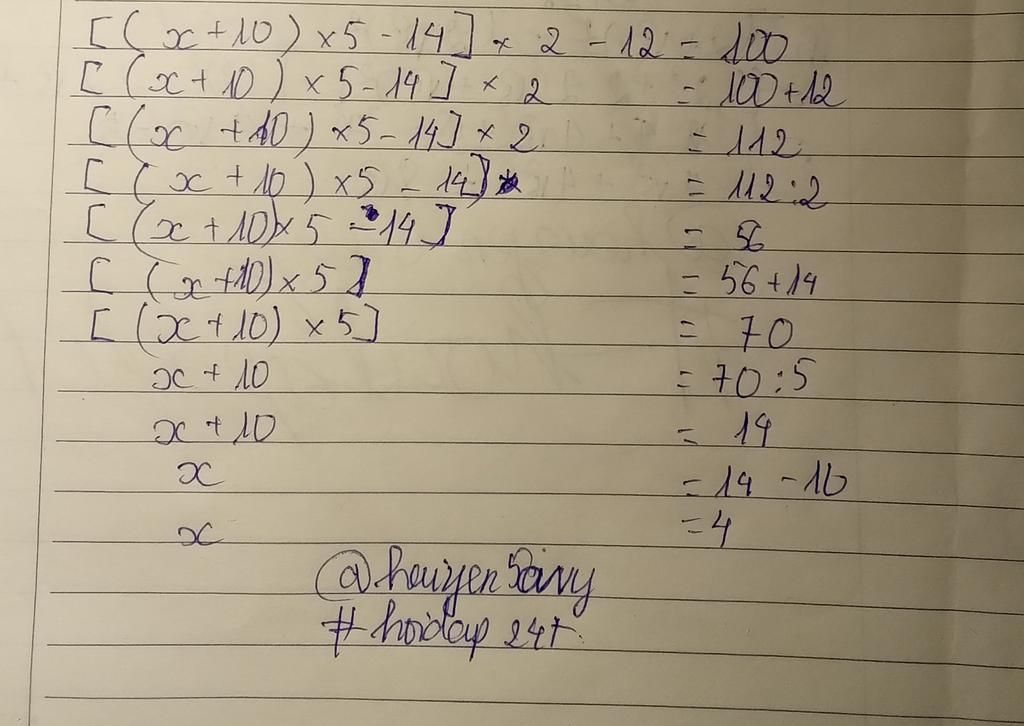 [(x+10)×5-14]×2-12=100
[(x+10)×5-14]×2=100+12
[(x+10)×5-14]×2=112
[(x+10)×5-14]=112:2
[(x+10)×5-14]=56
[(x+10)×5]=56+14
[(x+10)×5]=70
x+10=70:5
x+10=14
x=14-10
x=4
#hoidap 24+